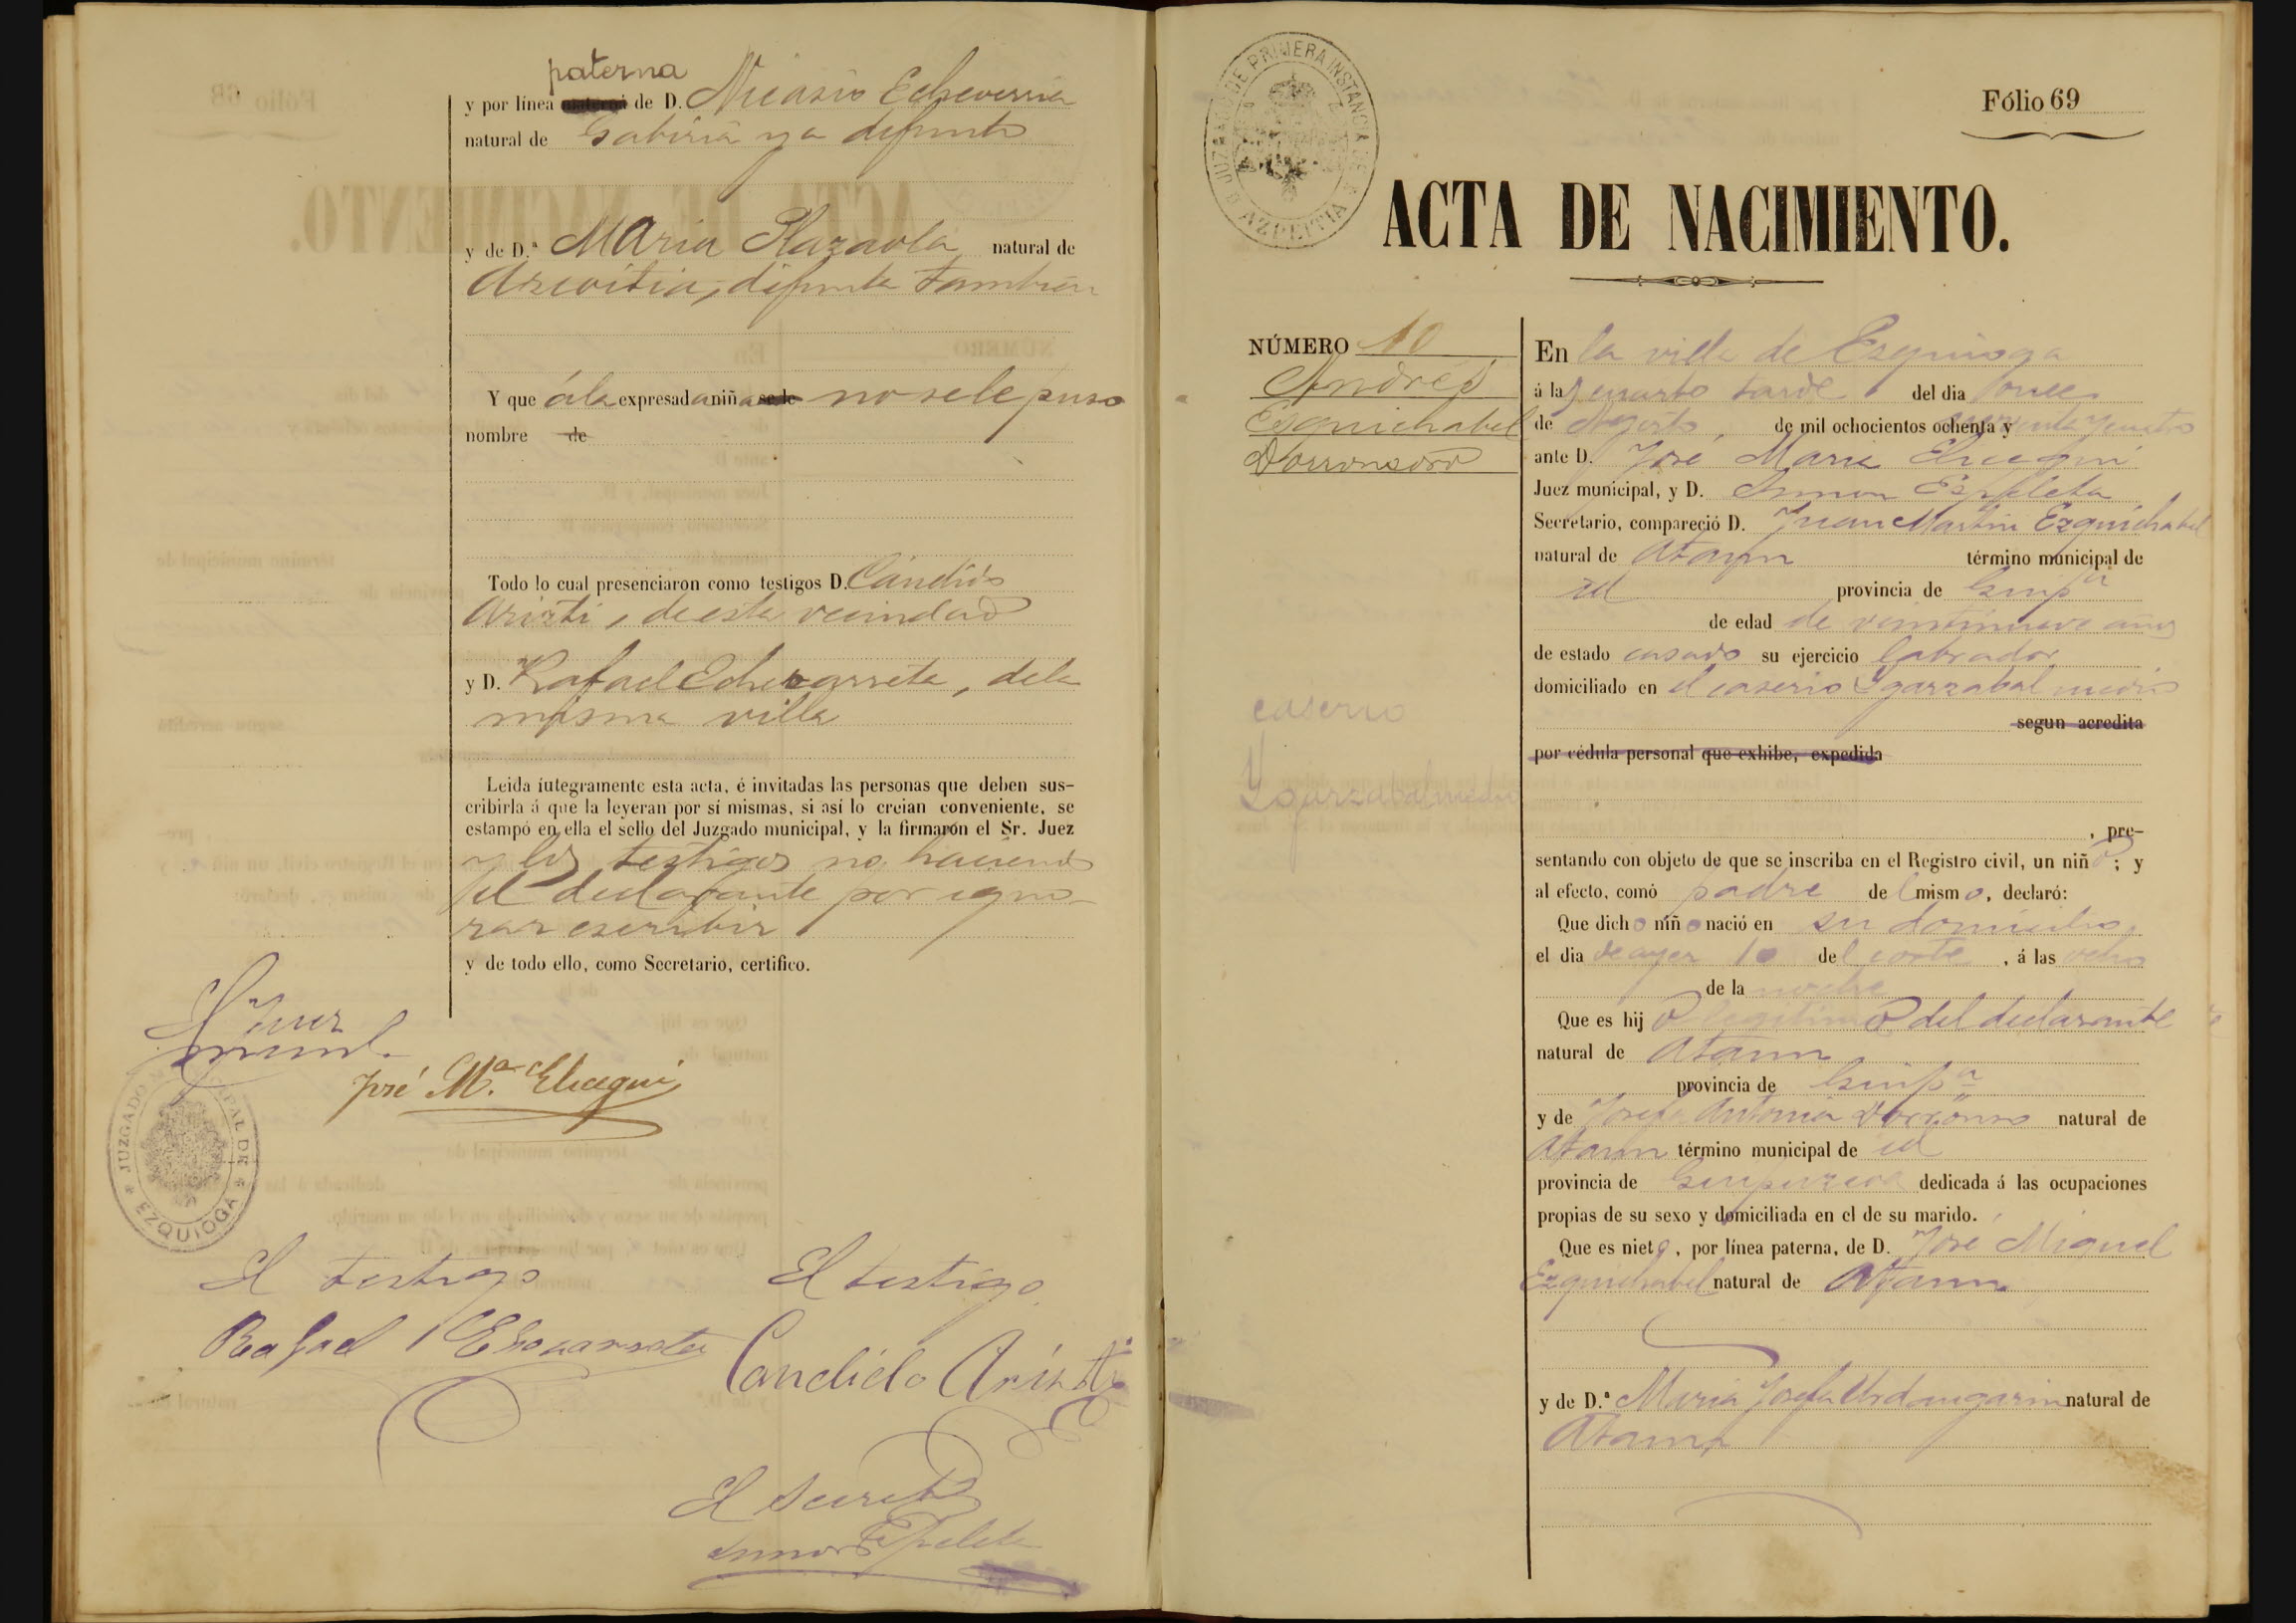 paterna
y por línea materna de D. Nicasio Echeverria
natural de Gabiria ya difunto
y de D.ª Maria Plazaola natural de
Azcoitia, difunta tambien
Y que á la expresada niña se le no se le puso
nombre de
Todo lo cual presenciaron como testigos D. Candido
Aristi, de esta vecindad
y D. Rafael Echevarreta, de la
misma villa
Leida íntegramente esta acta, é invitadas las personas que deben sus-
cribirla á que la leyeran por sí mismas, si así lo creian conveniente, se
estampó en ella el sello del Juzgado municipal, y la firmaron el Sr. Juez
y los testigos no haciendo
el declarante por igno-
rar escribir
y de todo ello, como Secretario, certifico.
El Juez
munl.
José Mª. Elicegui
JUZGADO MUNICIPAL DE
EZQUIOGA
El testigo
El testigo
Rafael
Candido Aristi
El Secretº
Espeleta
JUZGADO DE PRIMERA INSTANCIA DE
AZPEITIA
Fólio 69
ACTA DE NACIMIENTO.
NÚMERO 10
Andrés
Esquichabel
Dorronsoro
caserio
Ygarzabal medio
En la villa de Ezquioga
á la cuarto tarde del dia once
de Agosto, de mil ochocientos ochenta y noventa y cuatro
ante D. José Maria Elicegui
Juez municipal, y D. Espeleta
Secretario, compareció D. Juan Martin Ezquichabel
natural de Ataun término municipal de
id provincia de Guipª
de edad de veintinueve años
de estado casado su ejercicio labrador
domiciliado en el caserio Ygarzabal medio
segun acredita
por cédula personal que exhibe, expedida
, pre-
sentando con objeto de que se inscriba en el Registro civil, un niño; y
al efecto, comó padre del mismo, declaró:
Que dicho niño nació en su domicilio
el dia de ayer 10 del corte, á las ocho
de la noche
Que es hijo legitimo del declarante
natural de Ataun
provincia de Guipª
y de Josefa Antonia Dorronsoro natural de
Ataun término municipal de id
provincia de Guipuzcoa dedicada á las ocupaciones
propias de su sexo y domiciliada en el de su marido.
Que es nieto, por línea paterna, de D. José Miguel
Ezquichabel natural de Ataun
y de D.ª Maria Josefa Urdangarin natural de
Ataun